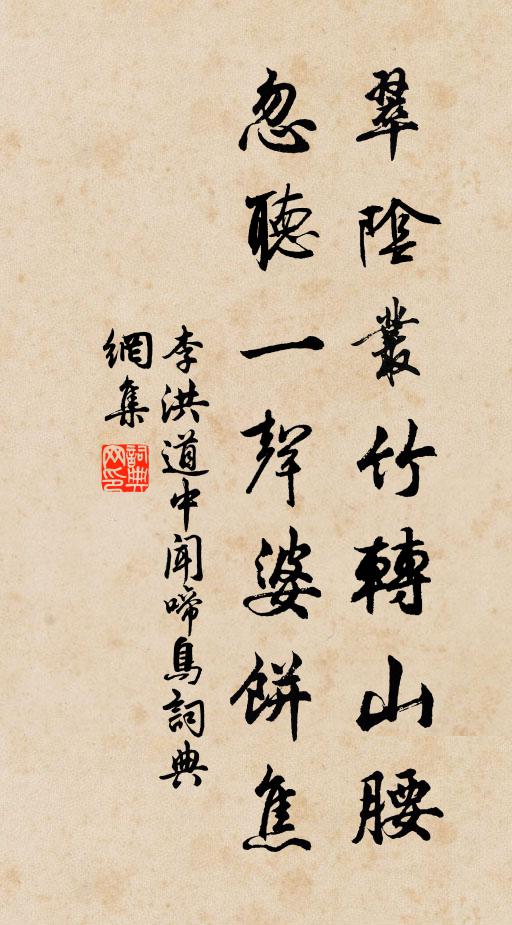 翠陰叢竹轉山腰
忽聽一聲婆餅焦
李洪道中聞啼鳥詞典
網集
詞典網印